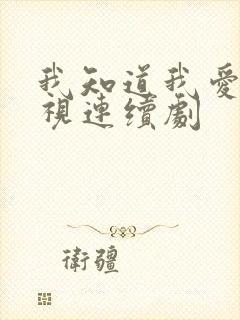 我知道我愛
視連續劇
衛疆